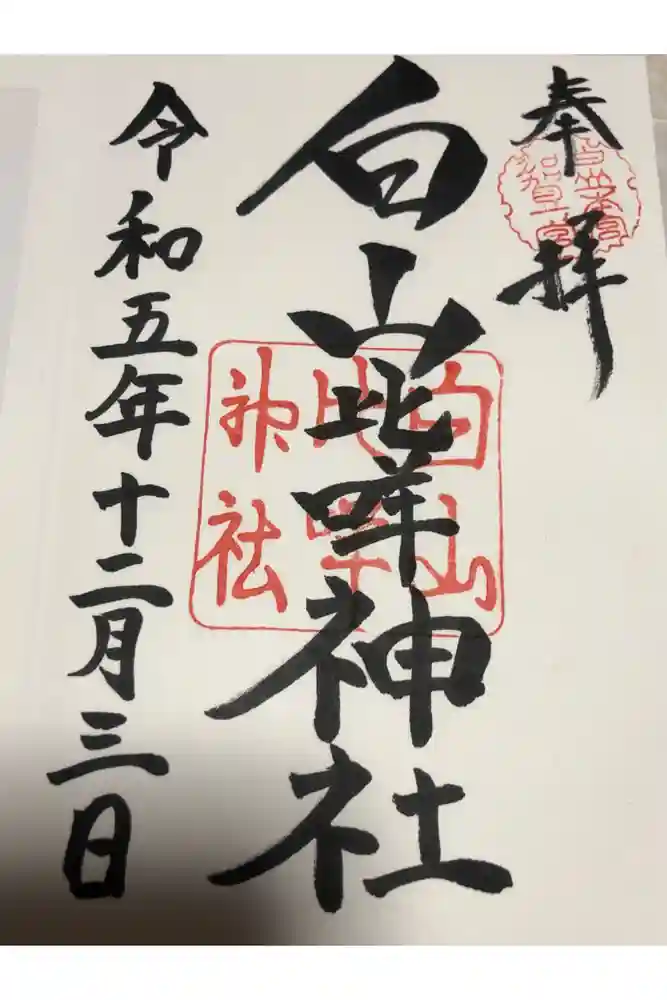 奉拝
白山比咩神社
白山比咩神社
令和五年十二月三日